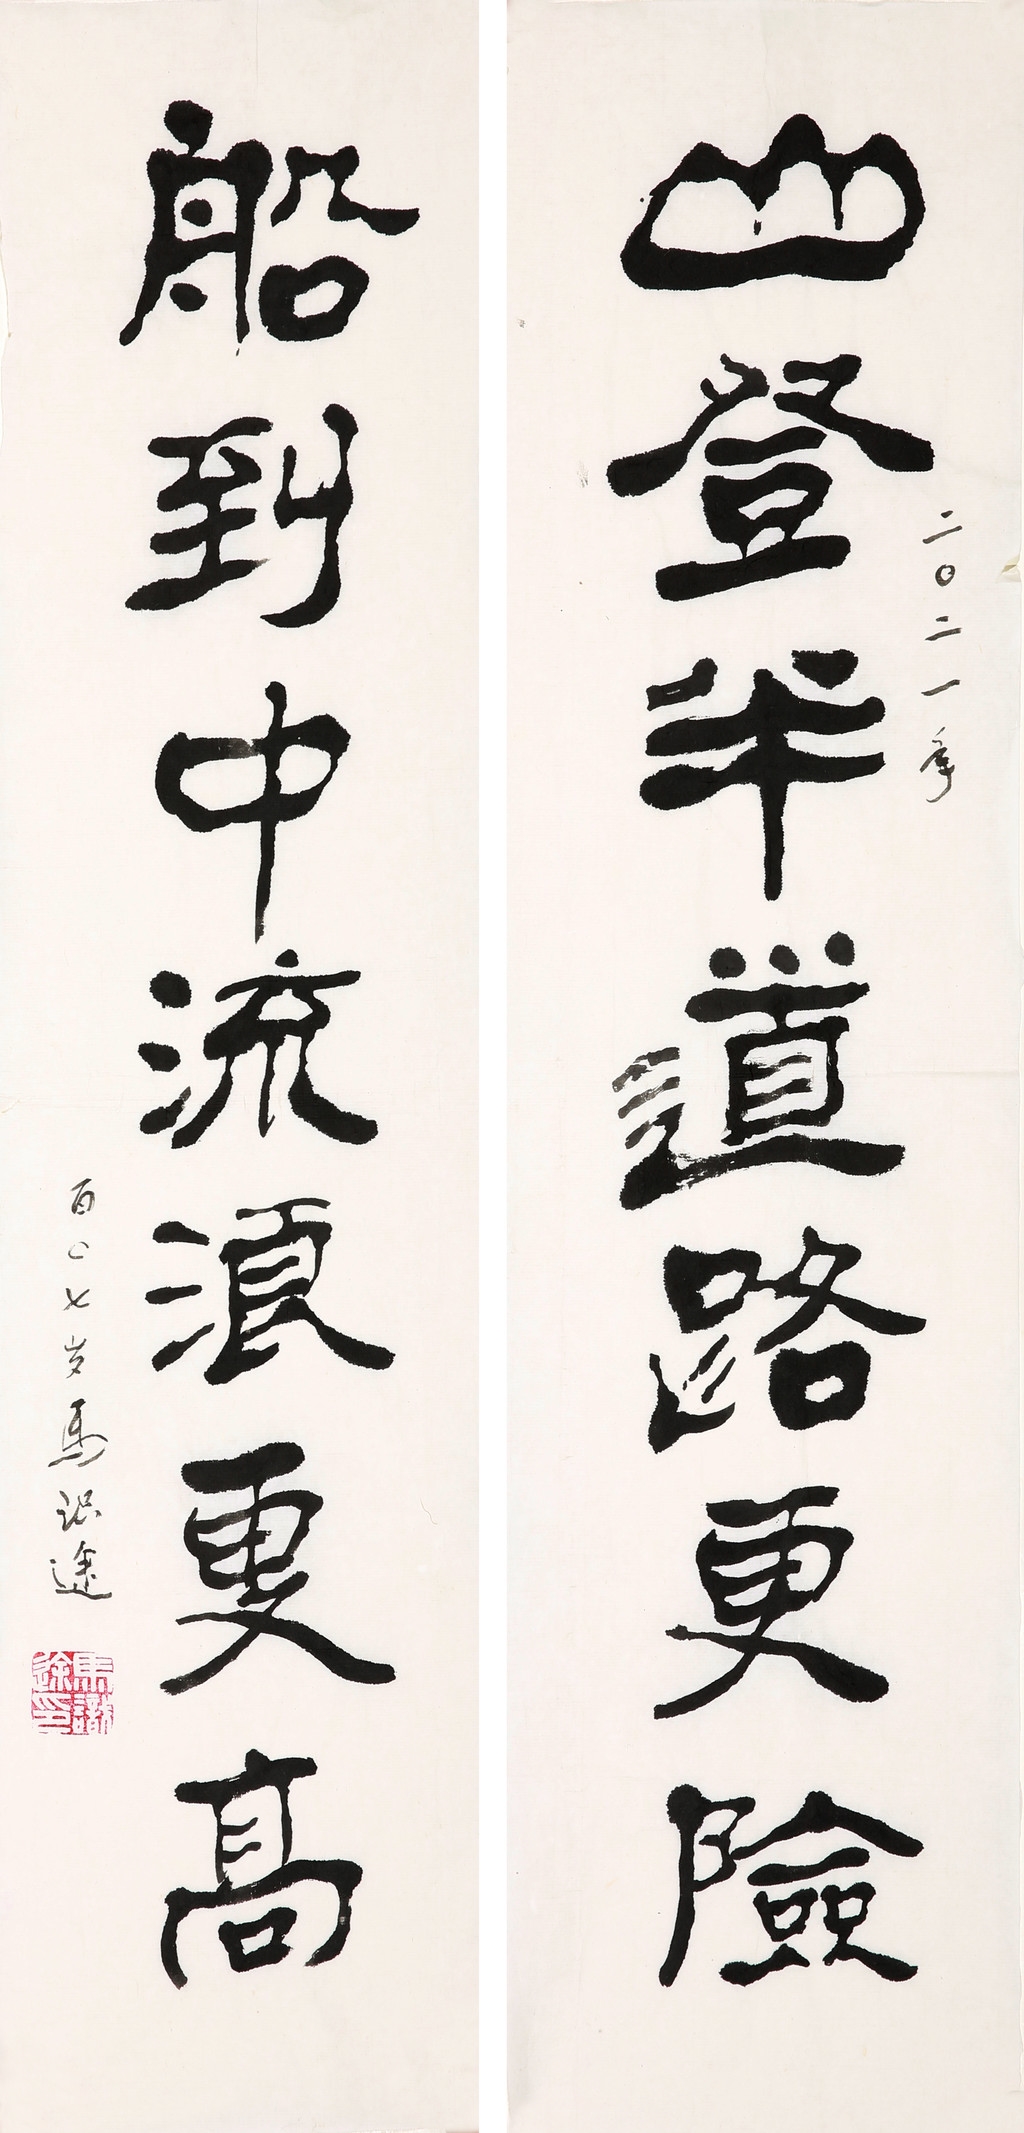 山登半道路更險
二〇二一年
船到中流浪更高
百〇七岁馬识途
馬識途印